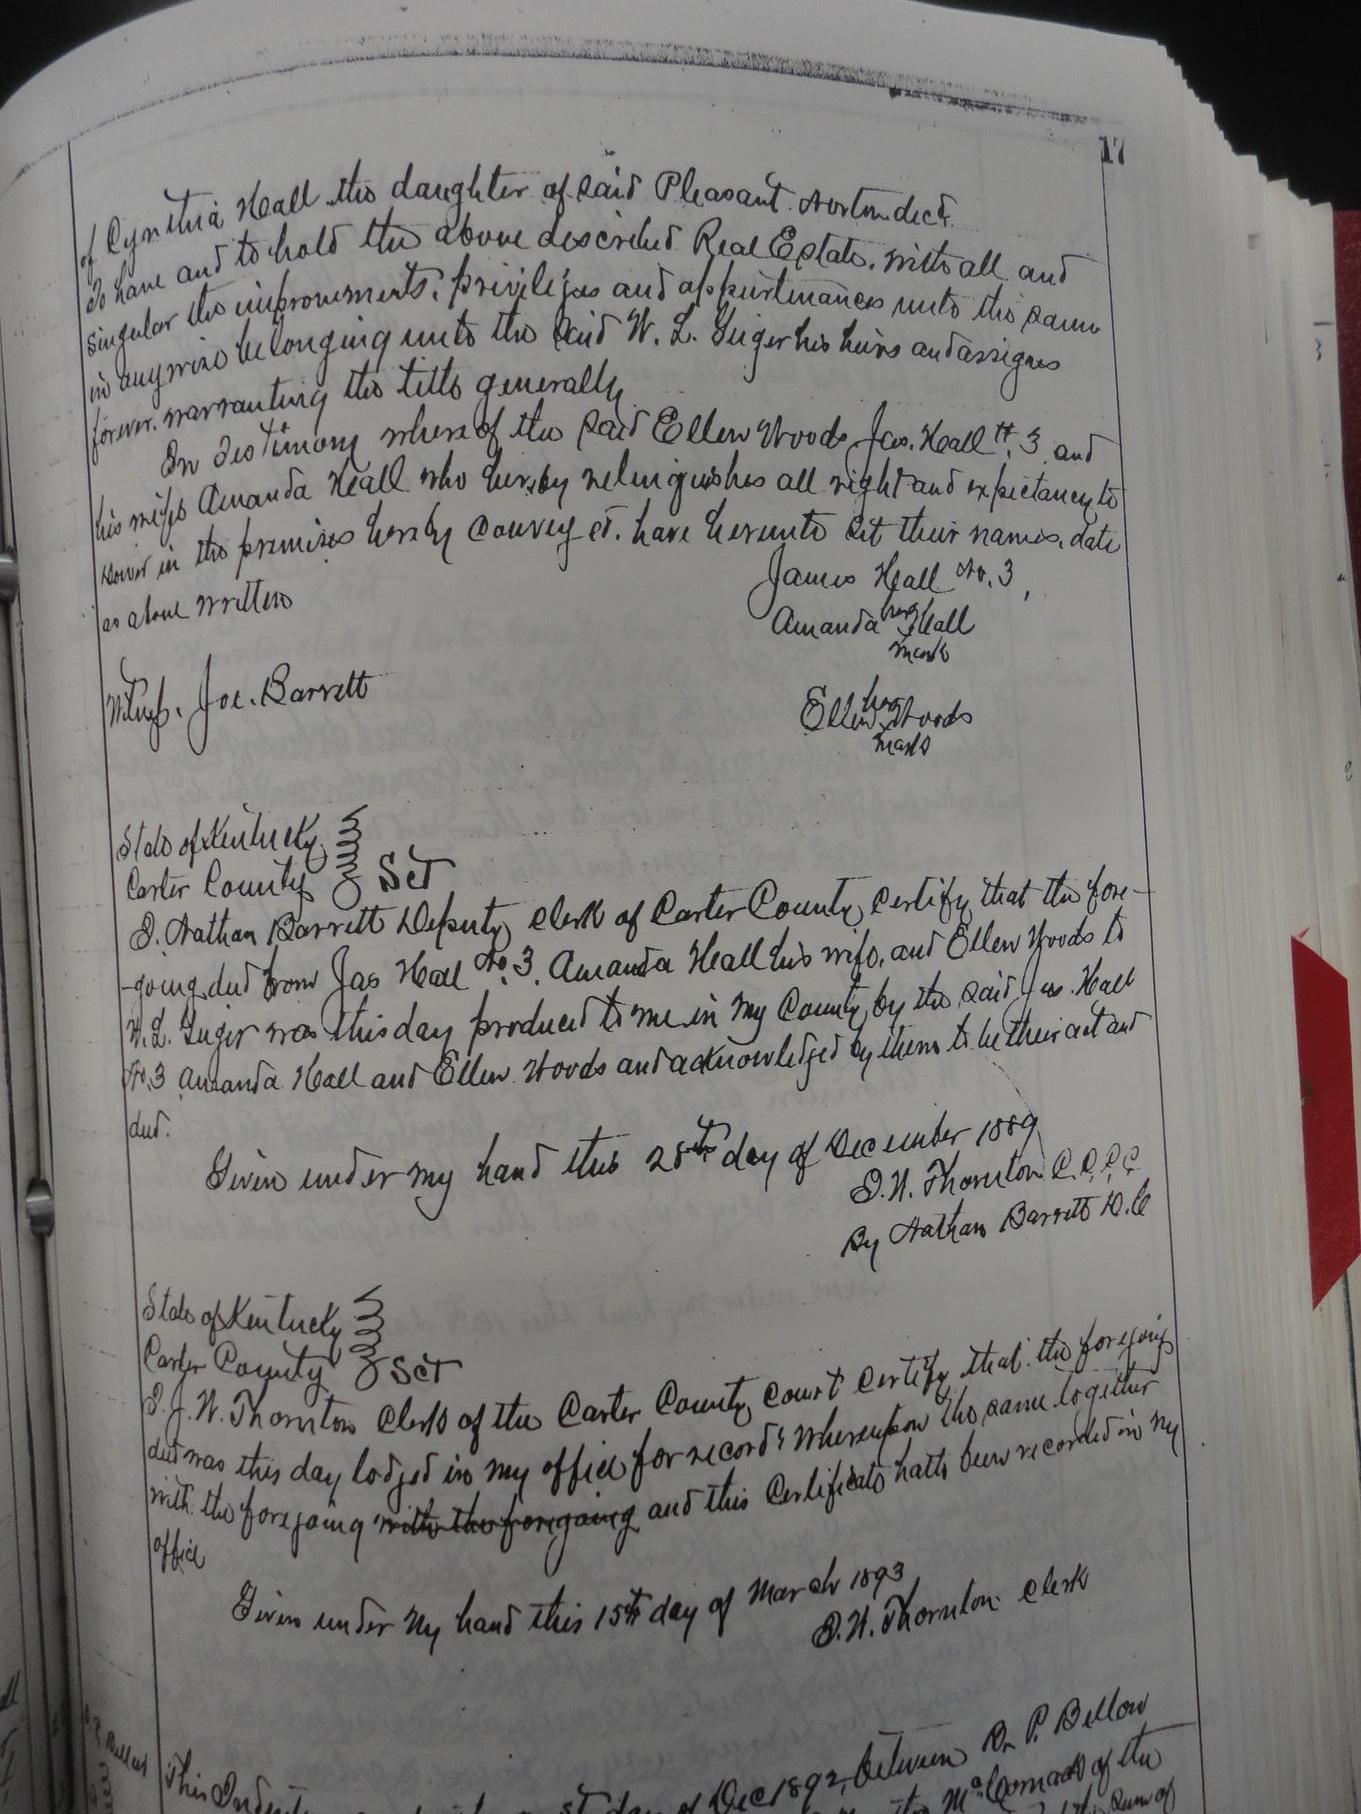 17
of Cynthia Hall the daughter of said Pleasant Norton decd.
To have and to hold the above described Real Estate, with all and
singular the improvements, privileges and appurtenances unto the same
in anywise belonging unto the said W. L. Geiger his heirs and assigns
forever. warranting the title generally
In Testimony where of the said Ellen Woods Jas. Hall No. 3 and
his wife Amanda Hall who hereby relinguishes all right and expectancy to
dower in the premises hereby Convey ed. have hereunto set their names, date
as above written
James Hall No. 3,
Amanda her Hall
mark
Witness. Joe. Barrett
Ellen her Woods
mark
State of Kentucky
Carter County Sct
I. Nathan Barrett Deputy Clerk of Carter County, Certify that the fore-
-going deed from Jas Hall No. 3. Amanda Hall his wife, and Ellen Woods to
W. L. Geiger was this day produced to me in my County by the said Jas. Hall
No. 3 Amanda Hall and Ellen Woods and acknowledged by them to be their act and
deed.
Given under my hand this 28th day of December 1889
J. W. Thornton C. C. C. C
By Nathan Barrett D. C
State of Kentucky
Carter County Sct
I. J. W. Thornton Clerk of the Carter County Court Certify that the foregoing
deed was this day lodged in my office for record & whereupon the same together
with the foregoing with the foregoing and this Certificate hath been recorded in my
office
Given under My hand this 15th day of March 1893
J. W. Thornton Clerk
This day of Dec 1892, between P. Bellow
of the
sum of